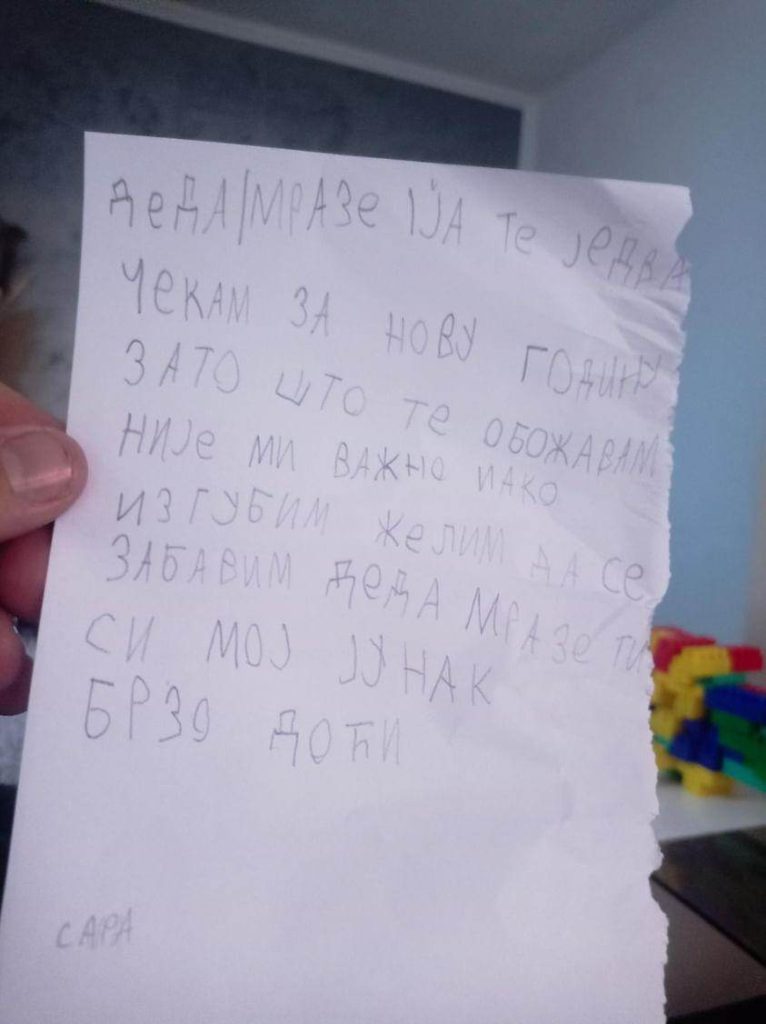 деДА/МРАЗе ІЈА Те једвА
ЧеКАМ ЗА НОВУ ГОДИНУ
ЗАТО ШТО Те ОБОЖАВАМ
НИЈе МИ ВАЖНО ИАКО
ИЗГУБИМ ЖеЛИМ ДА Се
ЗАБАВИМ ДеДА МРАЗе ТИ
СИ МОЈ ЈУНАК
БРЗО ДОЋИ
САРА